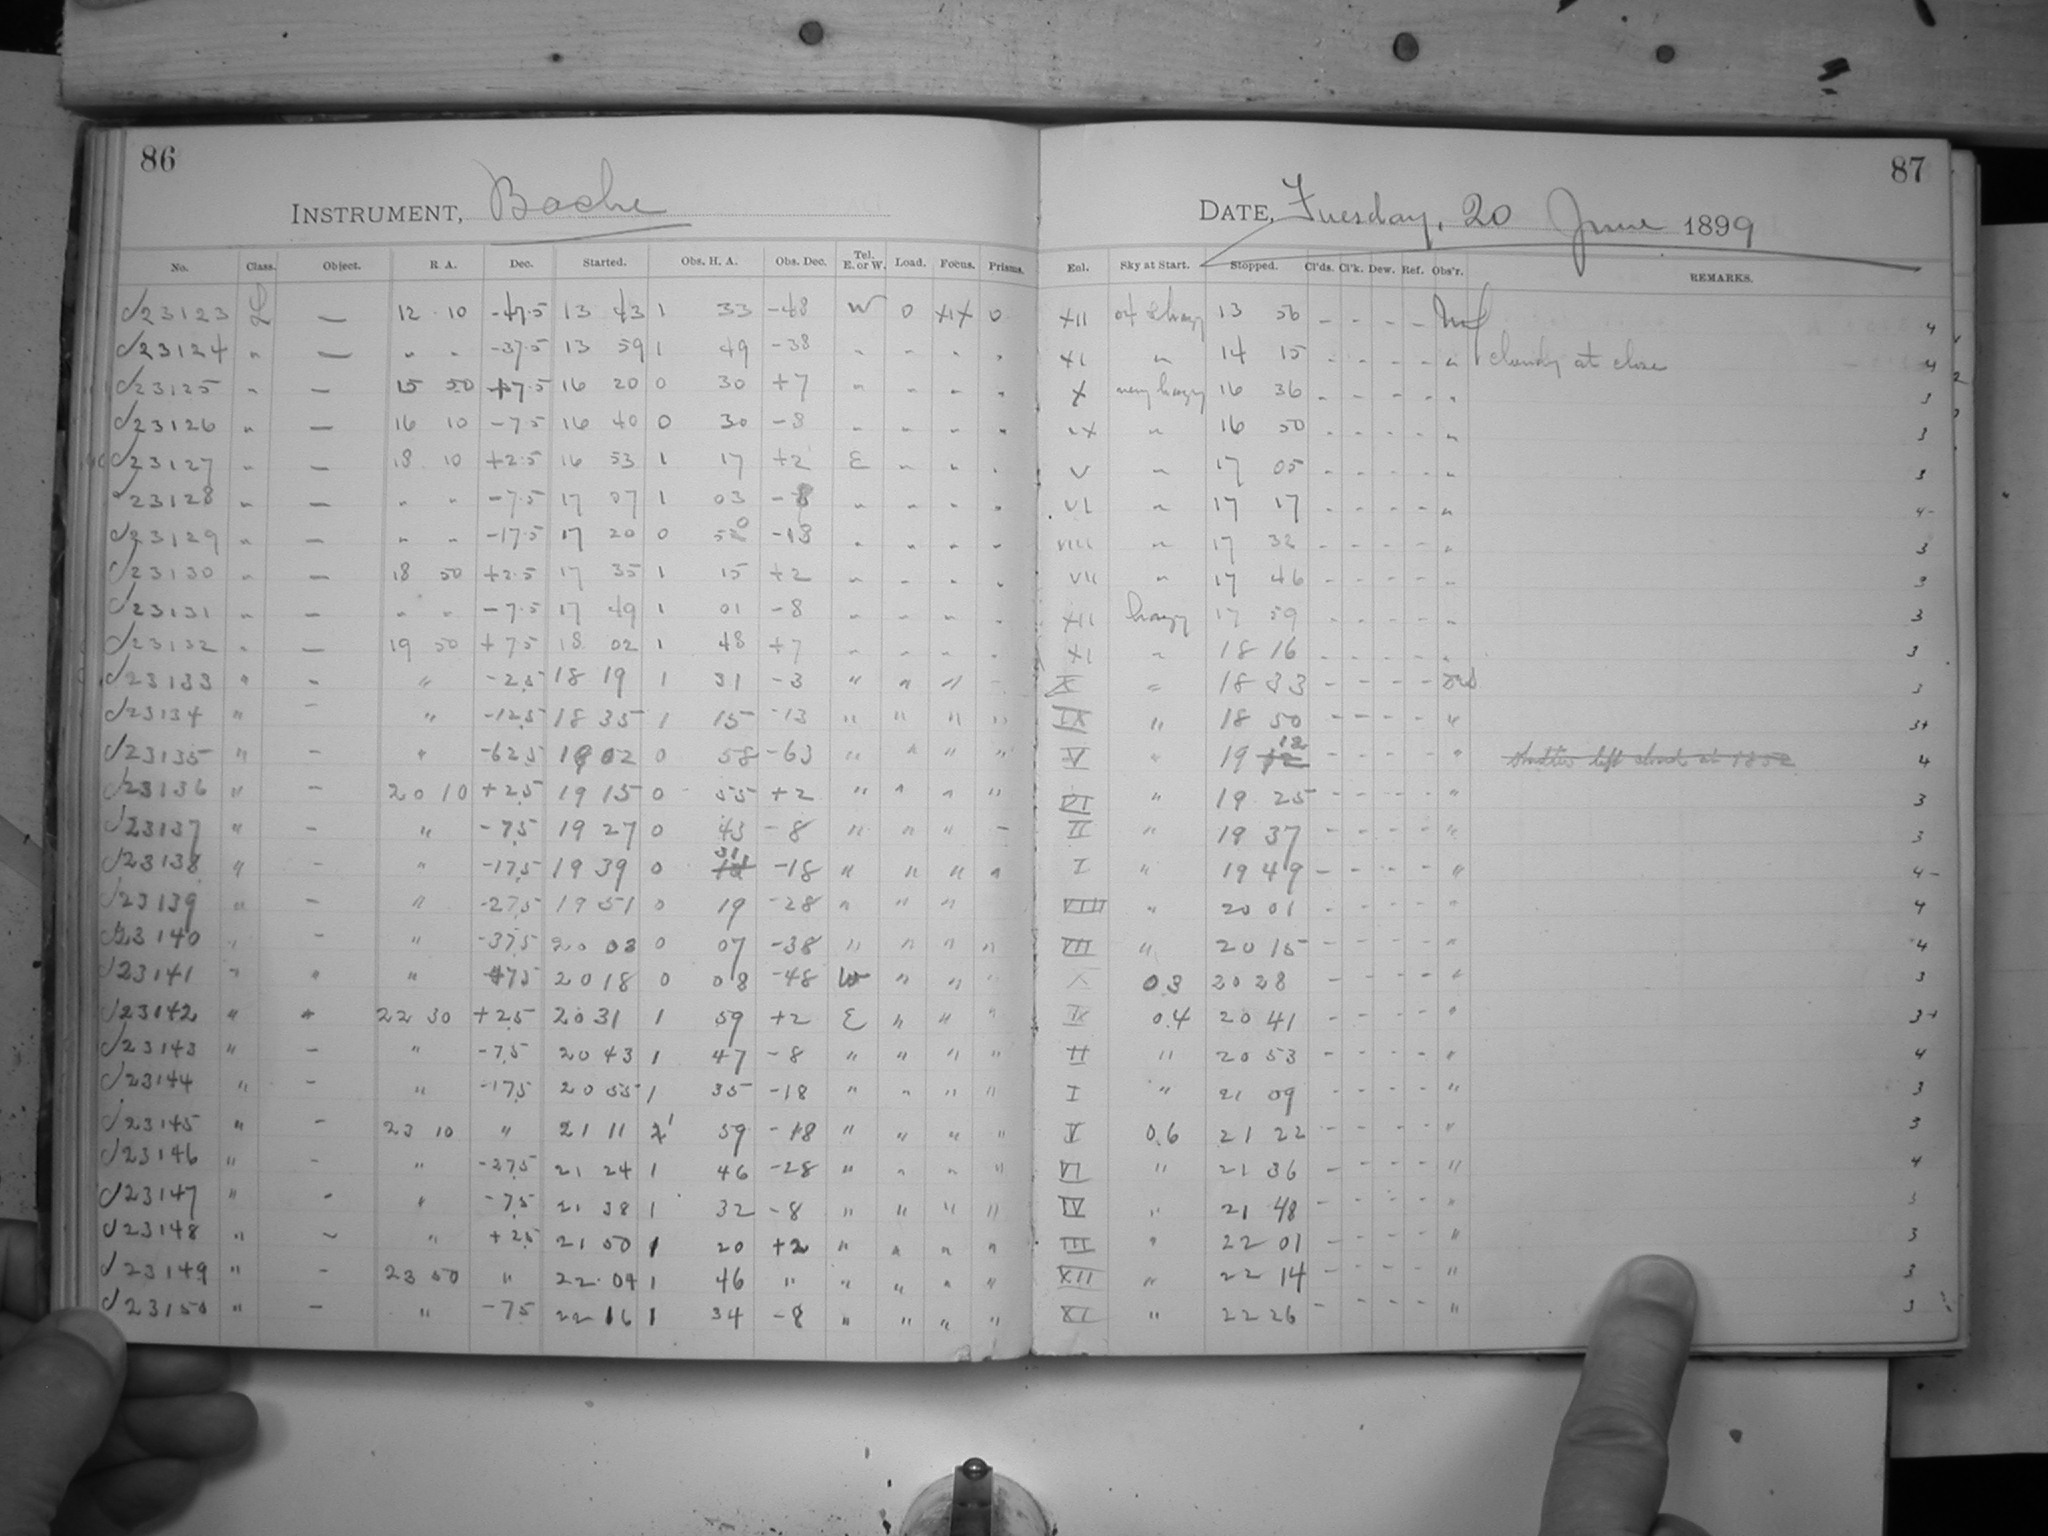 86
87
INSTRUMENT, Bache
DATE, Tuesday, 20 June 1899
No. Class. Object. R. A. Dec. Started. Obs. H. A. Obs. Dec. Tel. E. or W. Load. Focus. Prisms. Eol. Sky at Start. Stopped. Cl'ds. Cl'k. Dew. Ref. Obs'r. REMARKS.
23123 L — 12 10 -47.5 13 43 1 33 -48 W 0 XIX 0 XII 13 56 - - - - 4
23124 " — " " -37.5 13 59 1 49 -38 " " " " XI " 14 15 - - - - " cloudy at close 4
23125 " — 15 50 +7.5 16 20 0 30 +7 " " " " X very hazy 16 36 - - - - " 3
23126 " — 16 10 -7.5 16 40 0 30 -8 " " " " IX " 16 50 - - - - " 3
23127 " — 18 10 +2.5 16 53 1 17 +2 E " " " V " 17 05 - - - - " 3
23128 " — " " -7.5 17 07 1 03 -8 " " " " VI " 17 17 - - - - " 4-
23129 " — " " -17.5 17 20 0 50 -18 " " " " VIII " 17 32 - - - - " 3
23130 " — 18 50 +2.5 17 35 1 15 +2 " " " " VII " 17 46 - - - - " 3
23131 " — " " -7.5 17 49 1 01 -8 " " " " XII hazy 17 59 - - - - " 3
23132 " — 19 50 +7.5 18 02 1 48 +7 " " " " XI " 18 16 - - - - " 3
23133 " - " -2.5 18 19 1 31 -3 " " " - X " 18 33 - - - - 3
23134 " - " -12.5 18 35 1 15 -13 " " " " IX " 18 50 - - - - " 3+
23135 " - " -62.5 19 02 0 58 -63 " " " " V " 19 12 - - - - " Shutter left closed at 1852 4
23136 " - 20 10 +2.5 19 15 0 55 +2 " " " " VI " 19 25 - - - - " 3
23137 " - " -7.5 19 27 0 43 -8 " " " - II " 19 37 - - - - " 3
23138 " - " -17.5 19 39 0 31 -18 " " " " I " 19 49 - - - - " 4-
23139 " - " -27.5 19 51 0 19 -28 " " " VIII " 20 01 - - - - " 4
23140 " - " -37.5 20 03 0 07 -38 " " " " VII " 20 15 - - - - " 4
23141 " " " -47.5 20 18 0 08 -48 W " " " X 0.3 20 28 - - - - " 3
23142 " " 22 30 +2.5 20 31 1 59 +2 E " " " IX 0.4 20 41 - - - - " 3+
23143 " - " -7.5 20 43 1 47 -8 " " " " II " 20 53 - - - - " 4
23144 " - " -17.5 20 55 1 35 -18 " " " " I " 21 09 - - - - " 3
23145 " - 23 10 " 21 11 1 59 -18 " " " " V 0.6 21 22 - - - - " 3
23146 " - " -27.5 21 24 1 46 -28 " " " " VI " 21 36 - - - - " 4
23147 " - " -7.5 21 38 1 32 -8 " " " " IV " 21 48 - - - - " 3
23148 " - " +2.5 21 50 1 20 +2 " " " " III " 22 01 - - - - " 3
23149 " - 23 50 " 22 04 1 46 " " " " " XII " 22 14 - - - - " 3
23150 " - " -7.5 22 16 1 34 -8 " " " " XI " 22 26 - - - - " 3